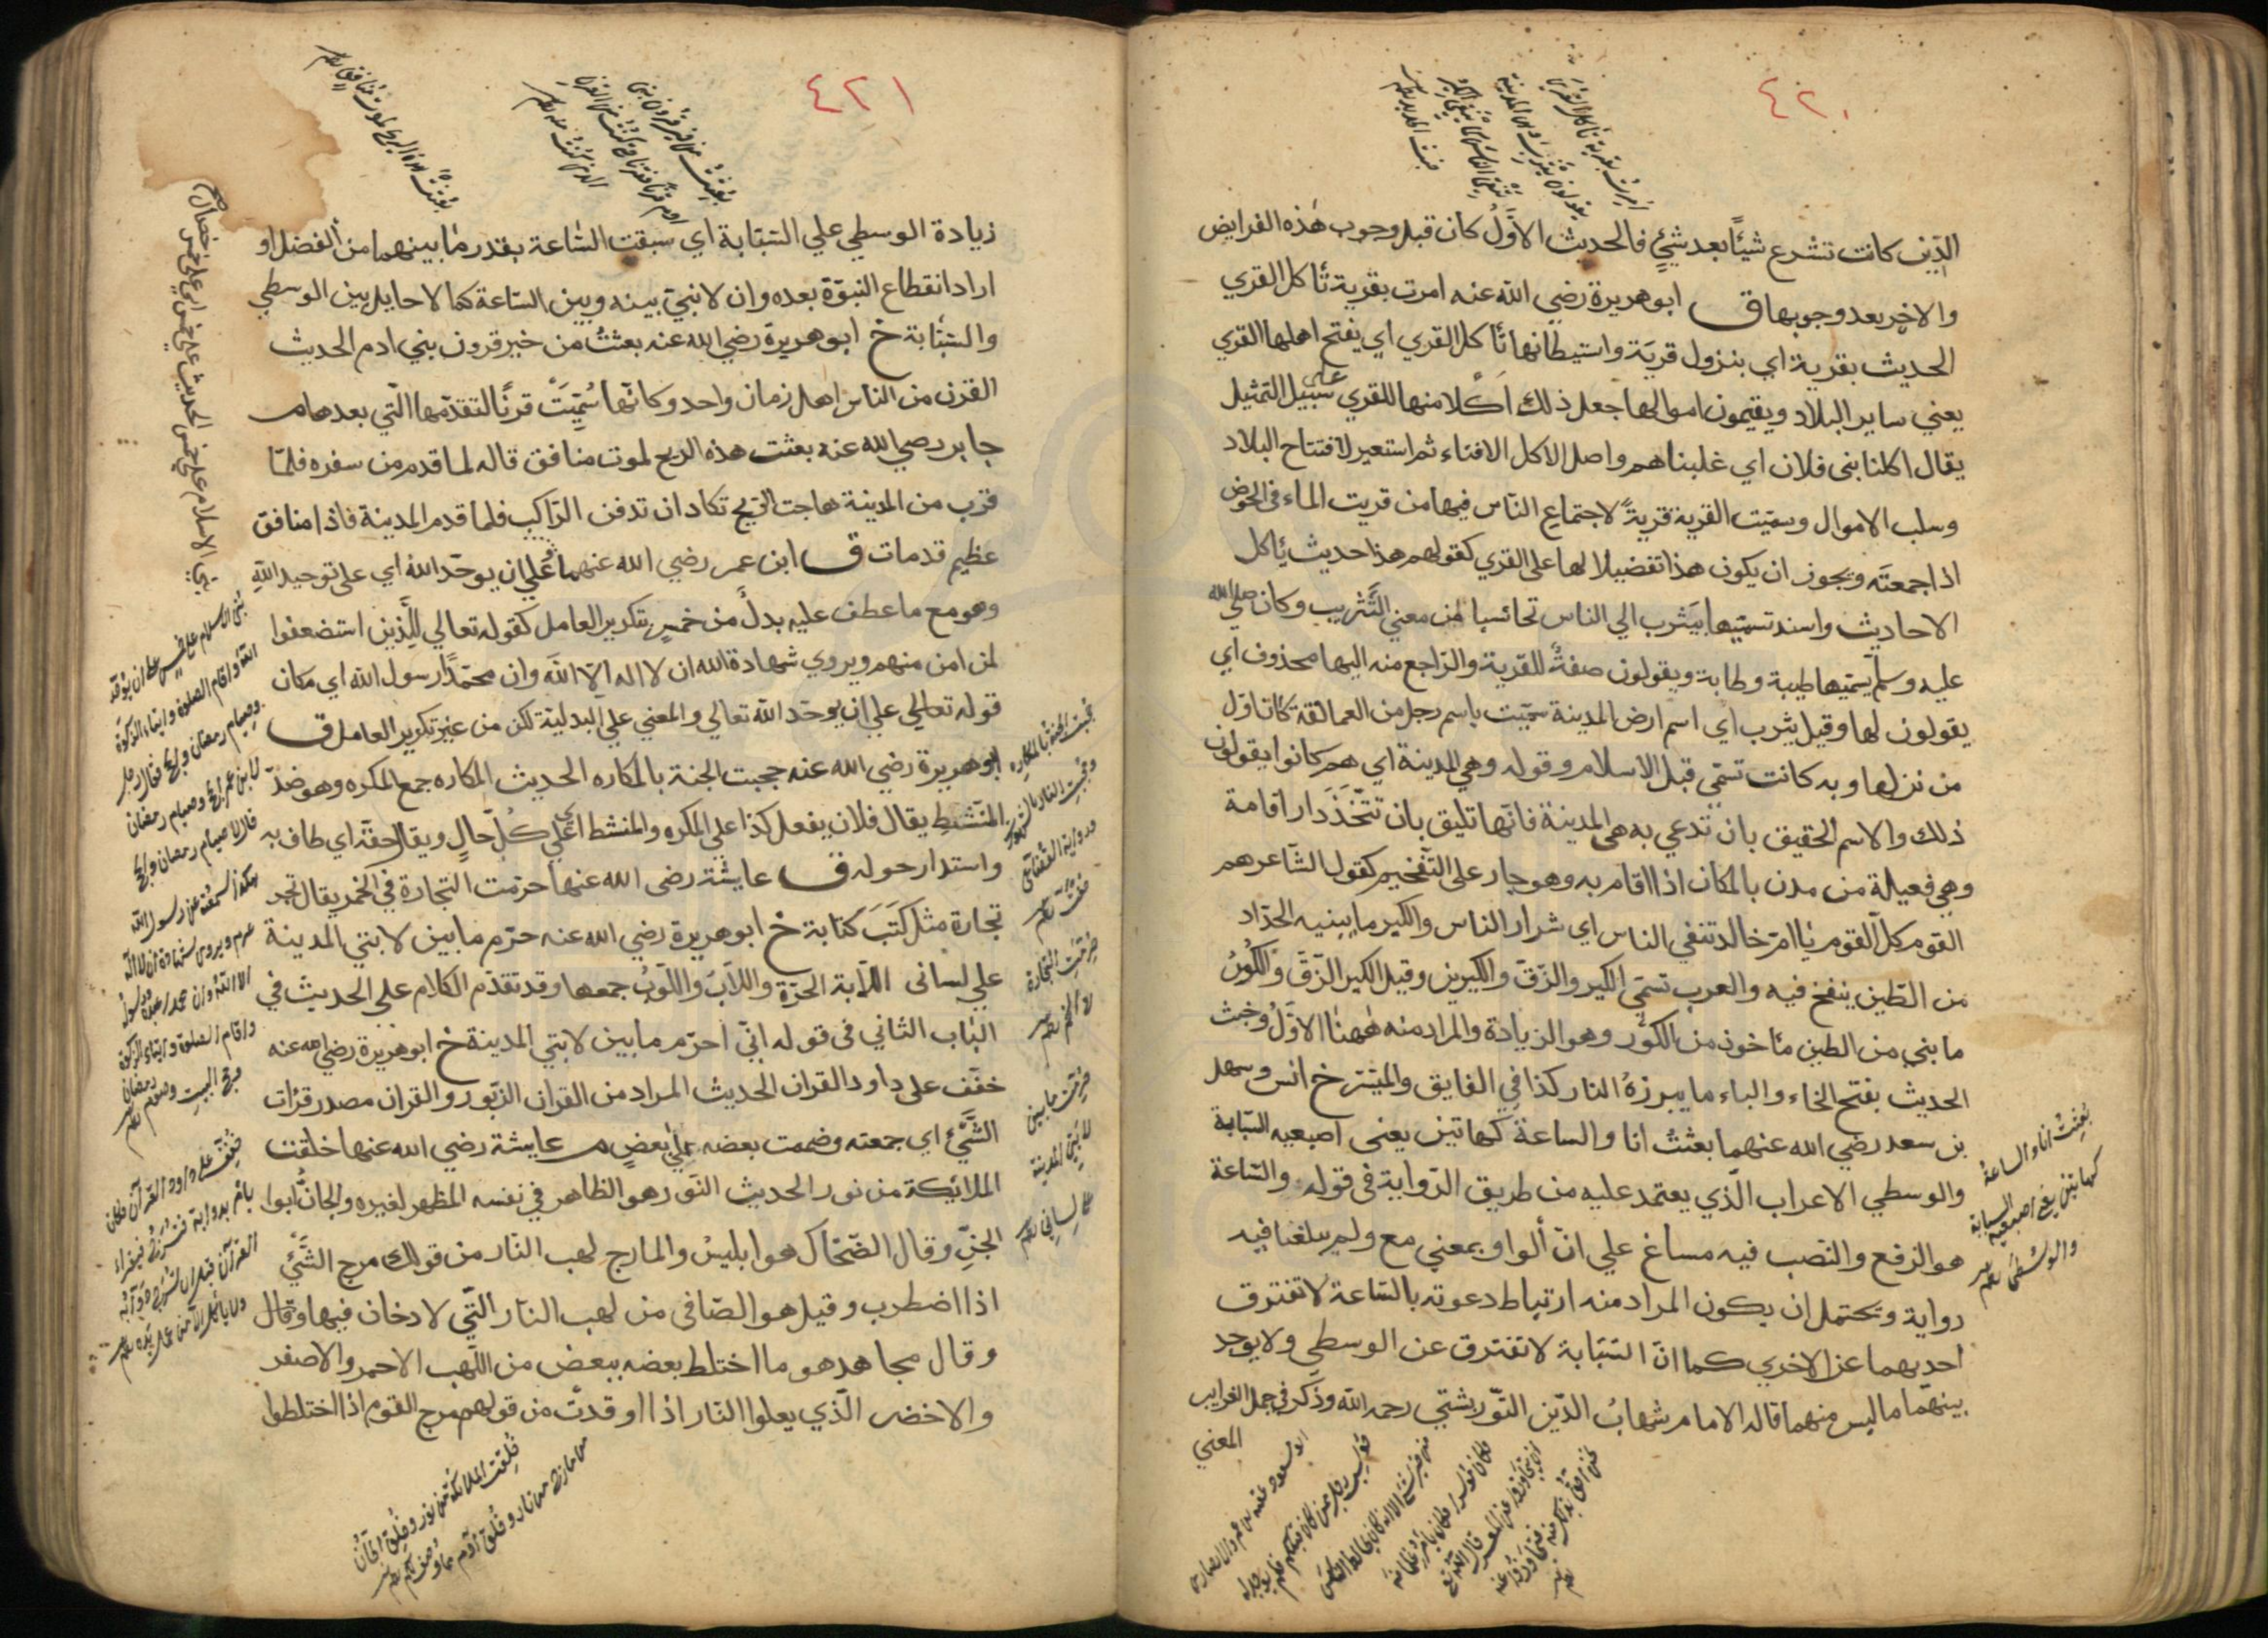 ٤٢٠
امرت بقرية تاكل القرى
يقولون يثرب وهي المدينة
تنفي الناس كما ينفي الكير
خبث الحديد
الذين كانت تشرع شيئاً بعد شيئٍ فالحديث الاوّلُ كان قبل وجوب هٰذه الفرايض
والاخر بعد وجوبها ق ابو هريرة رضي الله عنه امرت بقرية تأكل القري
الحديث بقرية اي بنزول قرية واستيطانها تأكل القري اي يفتح اهلها القري
يعني ساير البلاد ويقيمون اموالها جعل ذلك اكلا منها للقري على سبيل التمثيل
يقال اكلنا بنى فلان اي غلبناهم واصل الاكل الافناء ثم استعير لافتتاح البلاد
وسلب الاموال وسميّت القرية قريةً لاجتماع النّاس فيها من قريت الماء في الحوض
اذا جمعته ويجوز ان يكون هذا تفضيلا لها على القري كقولهم هذا حديث يأكل
الاحاديث واسند تسميتها بيثرب الي الناس تحاشيا لمن معني التَّثريب وكان صلي الله
عليه وسلم يسمّيها طيبة وطابة ويقولون صفةٌ للقرية والرّاجع منه اليها محذوف اي
يقولون لها وقيل يثرب اي اسم ارض المدينة سمّيت باسم رجل من العمالقة كان اوّل
من نزلها وبه كانت تسمّي قبل الاسلام وقوله وهي المدينة اي هم كانوا يقولون
ذلك والاسم الحقيق بان تدعي به هي المدينة فانّها تليق بان تتّخذ دار اقامة
وهي فعيلة من مدن بالمكان اذا اقام به وهو جار على التّفخيم كقول الشّاعر هم
القوم كلّ القوم يا امّ خالد تنفي الناس اي شرار الناس والكير ما يبنيه الحدّاد
من الطّين ينفخ فيه والعرب تسمّي الكير والزّقّ والكيرين وقيل الكير الزّقّ والكُورُ
ما بني من الطين مأخوذ من الكَوْر وهو الزيادة والمراد منه هٰهنا الاوّل وخبث
الحديث بفتح الخاء والباء ما يبرزهُ النار كذا في الفايق والميسّر خ انس وسهل
بن سعد رضي الله عنهما بعثتُ انا والساعة كهاتين يعنى اصبعيه السّبّابة
والوسطي الاعراب الّذي يعتمد عليه من طريق الرّواية في قوله والسّاعة
هو الرّفع والنّصب فيه مساغ علي انّ الواو بمعني مع ولم يبلغنا فيه
رواية ويحتمل ان يكون المراد منه ارتباط دعوته بالسّاعة لا تفترق
احديهما عن الاخري كما انّ السّبّابة لا تفترق عن الوسطي ولا يوجد
بينهما ما ليس منهما قاله الامام شهابُ الدّين التّوربشتي رحمه الله وذكر في جمل الغرايب
المعني
بُعِثتُ انا والساعة
كهاتين يعني اصبعيه السبابة
والوسطى
٤٢١
بعثت من خير قرون بني
ادم قرنا فقرنا حتى كنت من القرن
الذي كنت منه
بعثت هذه الريح لموت منافق
زيادة الوسطي علي السّبّابة اي سبقت السّاعة بقدر ما بينهما من الفضل او
اراد انقطاع النبوّة بعده وان لا نبيّ بينه وبين السّاعة كما لا حايل بين الوسطي
والسّبّابة خ ابو هريرة رضي الله عنه بعثتُ من خير قرون بني ادم الحديث
القرن من الناس اهل زمان واحد وكانّها سُمِّيَتْ قرنًا لتقدّمها الّتي بعدها م
جابر رضي الله عنه بعثت هذه الريح لموت منافق قاله لما قدم من سفره فلمّا
قرب من المدينة هاجت الريح تكاد ان تدفن الرّاكب فلما قدم المدينة فاذا منافق
عظيم قد مات ق ابن عمر رضي الله عنهما علي ان يوحّد الله اي على توحيد اللهِ
وهو مع ما عطف عليه بدلٌ من خمس بتكرير العامل كقوله تعالي للّذين استضعفوا
لمن امن منهم ويروي شهادة الله ان لا اله الّا الله وان محمّدًا رسول الله اي مكان
قوله تعالي علي ان يوحّد الله تعالي والمعني علي البدليّة لكن من غير تكرير العامل ق
ابو هريرة رضي الله عنه حجبت الجنة بالمكاره الحديث المكاره جمع المكره وهو ضدّ
المَنْشَطِ يقال فلان يفعل كذا علي المكره والمنشط اي علي كلّ حالٍ ويقال حفّه اي طاف به
واستدار حوله ق عايشة رضي الله عنها حرّمت التجارة في الخمر يقال تجر
تجارة مثل كَتَبَ كتابة خ ابو هريرة رضي الله عنه حرّم ما بين لابتي المدينة
علي لسانى اللّابة الحرّة واللّابَ واللّوبُ جمعها وقد تقدّم الكلام على الحديث في
الباب الثاني في قوله انّي احرّم ما بين لابتي المدينة خ ابو هريرة رضي الله عنه
خفّف على داود القران الحديث المراد من القران الزّبور والقران مصدر قرأت
الشَّيْءَ اي جمعته وضممت بعضه علي بعضٍ م عايشة رضي الله عنها خلقت
الملائكة من نور الحديث النّور هو الظاهر في نفسه المظهر لغيره والجانّ ابوا
الجنِّ وقال الضّحّاك هو ابليس والمارج لهب النّار من قولك مرج الشّيْءُ
اذا اضطرب وقيل هو الصّافي من لهب النّار الّتي لا دخان فيها وقال
وقال مجاهد هو ما اختلط بعضه ببعض من اللّهب الاحمر والاصفر
والاخضر الّذي يعلوا النّار اذا اوقدت من قولهم مرج القوم اذا اختلطوا
بني الاسلام على خمس على ان يوحد
الله واقام الصلوة وايتاء الزكوة
وصيام رمضان والحج فقال رجل
حجبت الجنة بالمكاره
وحجبت النار بالشهوات
حُرّمت التجارة
في الخمر
حرّمت ما بين
لابتي المدينة
على لساني
خفف على داود القرآن فكان
يامر بدوابه فتسرج فيقراء
القرآن قبل ان تسرج دوابه
ولا ياكل الا من عمل يده
خُلِقت الملائكة من نور وخُلِق الجانّ
من مارج من نار وخُلق آدم مما وصف لكم